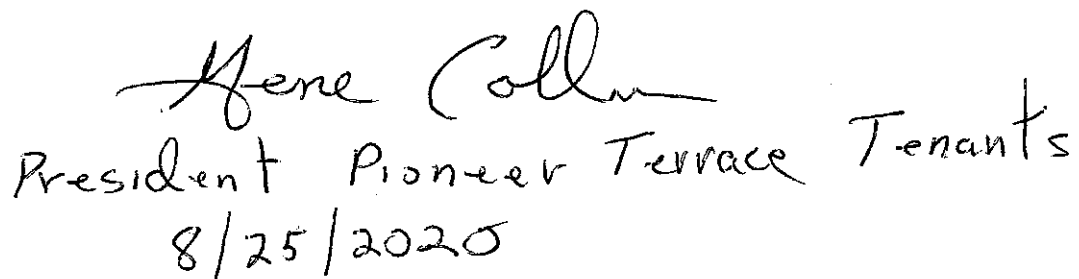 Gene
President Pioneer Terrace Tenants
8/25/2020